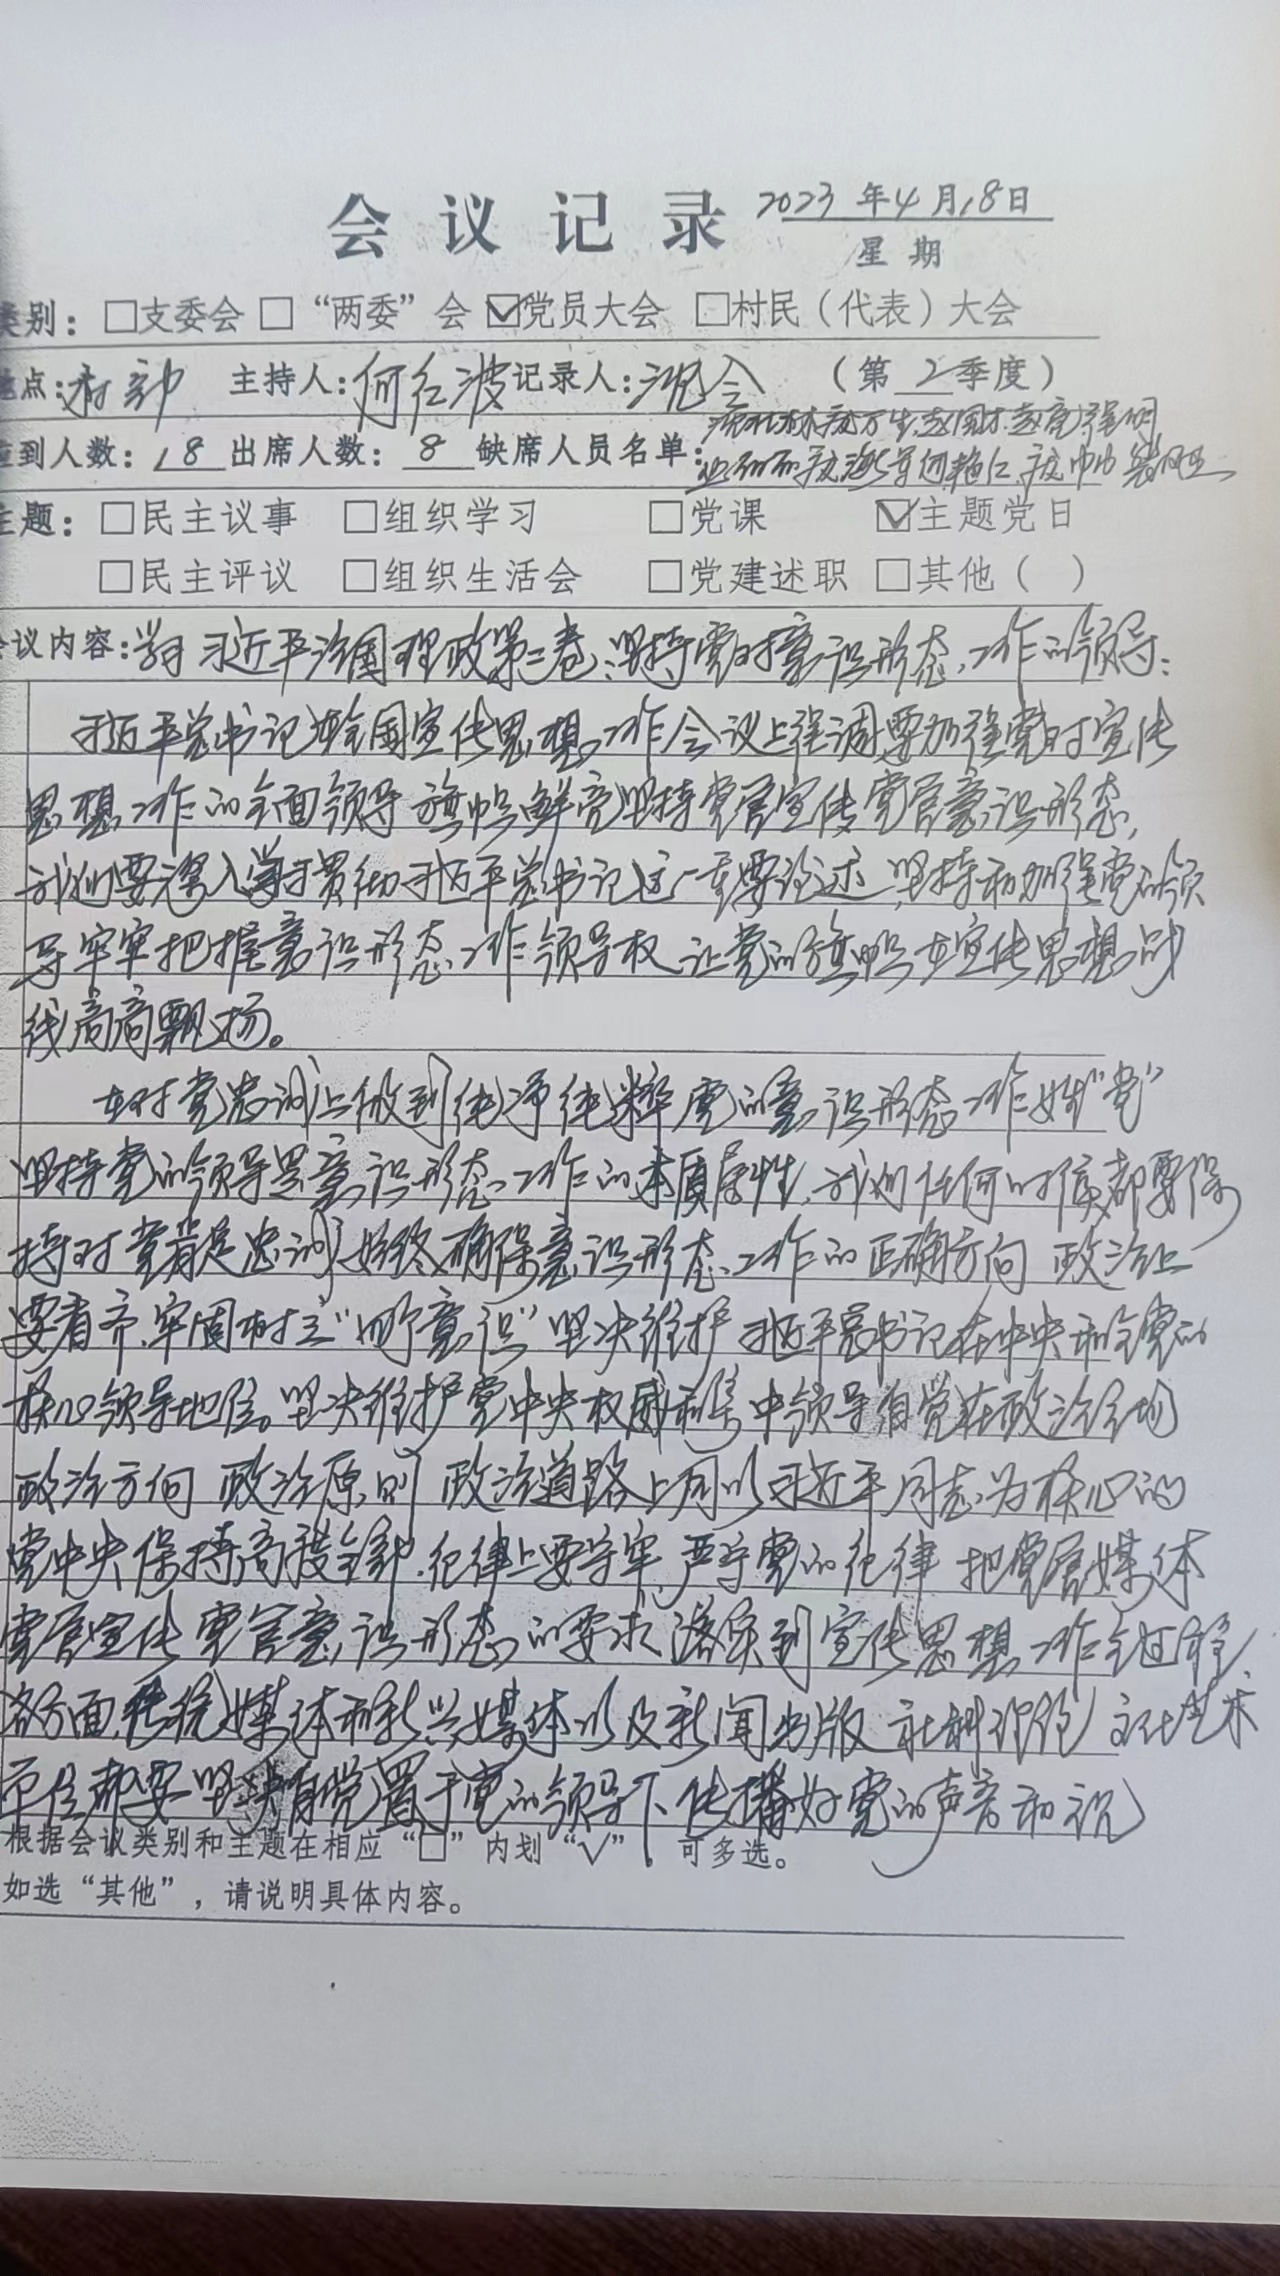 会议记录 2023年4月18日
星期
类别：□支委会 □“两委”会 ☑党员大会 □村民（代表）大会
地点：村部 主持人：何红波 记录人：沈会 （第2季度）
应到人数：18 出席人数：8 缺席人员名单：
主题：□民主议事 □组织学习 □党课 ☑主题党日
□民主评议 □组织生活会 □党建述职 □其他（ ）
会议内容：学习习近平治国理政第三卷：坚持党对意识形态工作的领导：
习近平总书记在全国宣传思想工作会议上强调要加强党对宣传
思想工作的全面领导旗帜鲜亮坚持党管宣传党管意识形态，
我们要深入学习贯彻习近平总书记这一重要论述，坚持和加强党的领
导牢牢把握意识形态工作领导权让党的旗帜在宣传思想战
线高高飘扬。
在对党忠诚上做到纯净纯粹党的意识形态工作姓“党”
坚持党的领导是意识形态工作的本质属性，我们任何时候都要保
持对党忠诚始终确保意识形态工作的正确方向 政治上
要看齐、牢固树立“四个意识”坚决维护习近平总书记在中央和全党的
核心领导地位。坚决维护党中央权威和集中领导自觉在政治立场
政治方向 政治原则 政治道路上同以习近平同志为核心的
党中央保持高度一致，纪律上要守牢，严守党的纪律 把党管媒体
党管宣传党管意识形态的要求落实到宣传思想工作全过程
各方面，传统媒体和新兴媒体以及新闻出版 社科理论 文化艺术
单位都要坚决自觉置于党的领导下、传播好党的声音和主
根据会议类别和主题在相应“□”内划“√”，可多选。
如选“其他”，请说明具体内容。